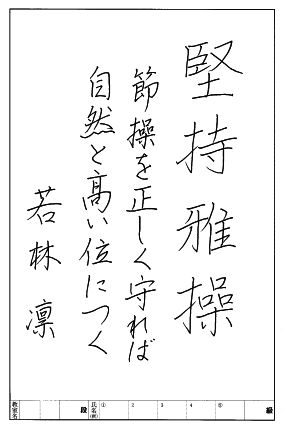 堅持雅操
節操を正しく守れば
自然と高い位につく
若林 凛
級 ⑤ 4 3 2 ① 氏名 段 教室名